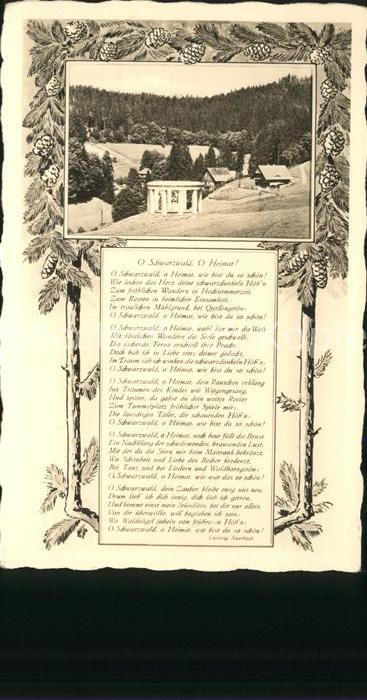 O Schwarzwald, O Heimat!
O Schwarzwald, o Heimat, wie bist du so schön!
Wie locken das Herz deine schwarzdunkeln Höh'n
Zum fröhlichen Wandern in Hochsommerzeit,
Zum Rasten in heimlicher Einsamkeit,
Im traulichen Mühlgrund, bei Quellengetön:
O Schwarzwald, o Heimat, wie bist du so schön!
O Schwarzwald, o Heimat, wohl hat mir die Welt
Mit köstlichen Wundern die Seele geschwellt;
Die lachende Ferne erschloß ihre Pracht;
Doch hab ich in Liebe stets deiner gedacht,
Im Traum sah ich winken die schwarzdunkeln Höh'n,
O Schwarzwald, o Heimat, wie bist du so schön!
O Schwarzwald, o Heimat, dein Rauschen erklang
Ins Träumen des Kindes wie Wiegengesang.
Und später, da gabst du dein weites Revier
Zum Tummelplatz fröhlicher Spiele mir;
Die sonnigen Täler, die schauenden Höh'n:
O Schwarzwald, o Heimat, wie bist du so schön!
O Schwarzwald, o Heimat, noch heut füllt die Brust
Ein Nachklang der schwärmenden, brausenden Lust.
Mit der du die Stirn mir beim Maitrank bekränzt,
Wo Schönheit und Liebe den Becher kredenzt,
Bei Tanz und bei Liedern und Waldhorngetön:
O, Schwarzwald, o Heimat, wie war das so schön!
O Schwarzwald, dein Zauber bleibt ewig uns neu,
Drum lieb' ich dich innig, dich lieb ich getreu,
Und kommt einst mein Stündlein, bei dir nur allein,
Von dir überwölbt, will begraben ich sein;
Wo Waldvögel jubeln von Höh'n:
O Schwarzwald, o Heimat, wie bist du so schön!
Ludwig Auerbach